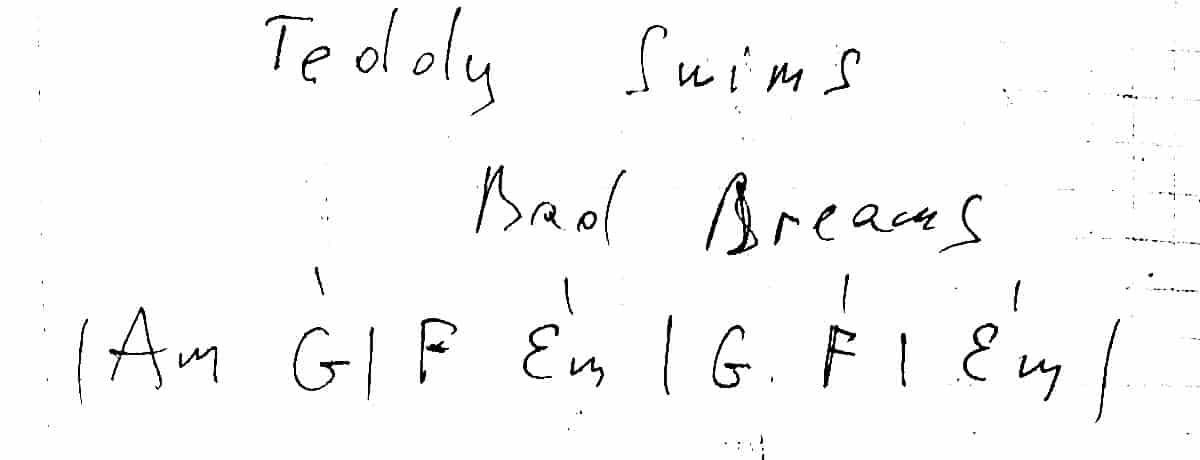 Teddy Swims
Bad Dreams
| Am G | F Em | G F | Em |